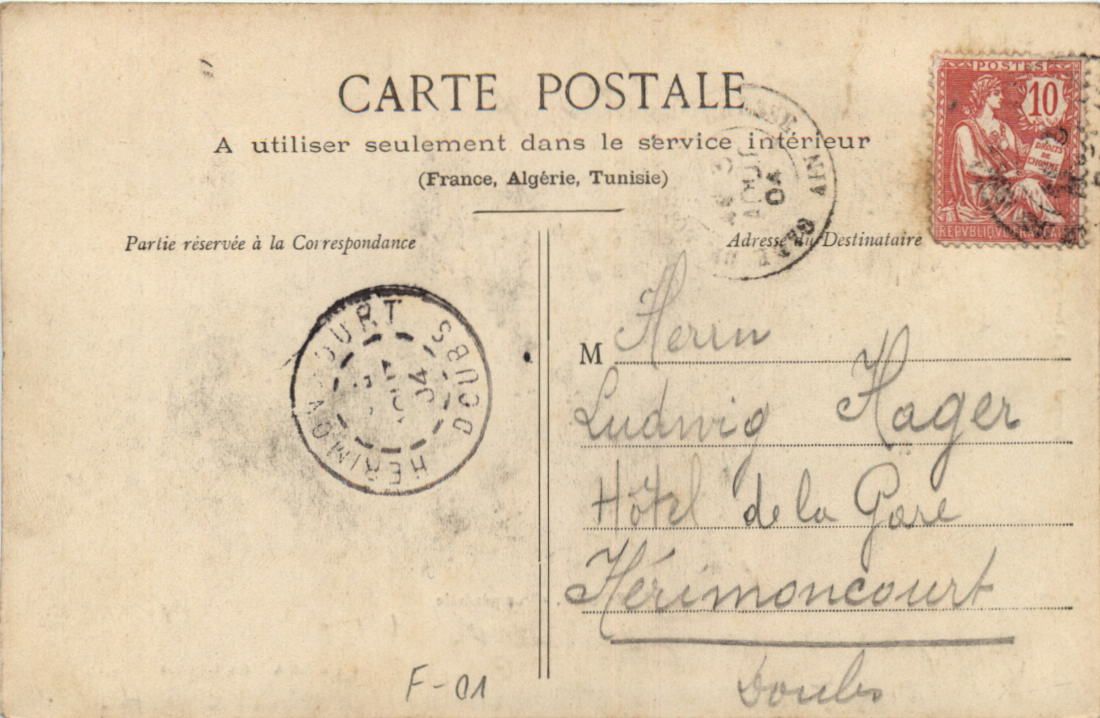 CARTE POSTALE
A utiliser seulement dans le service intérieur
(France, Algérie, Tunisie)
POSTES
10
DROITS DE L'HOMME
REPVBLIQVE FRANÇAISE
AIN
AOUT
04
Partie réservée à la Correspondance
Adresse du Destinataire
HERIMONCOURT DOUBS
AOUT
04
M Herrn
Ludwig Hager
Hôtel de la Gare
Hérimoncourt
Doubs
F-01